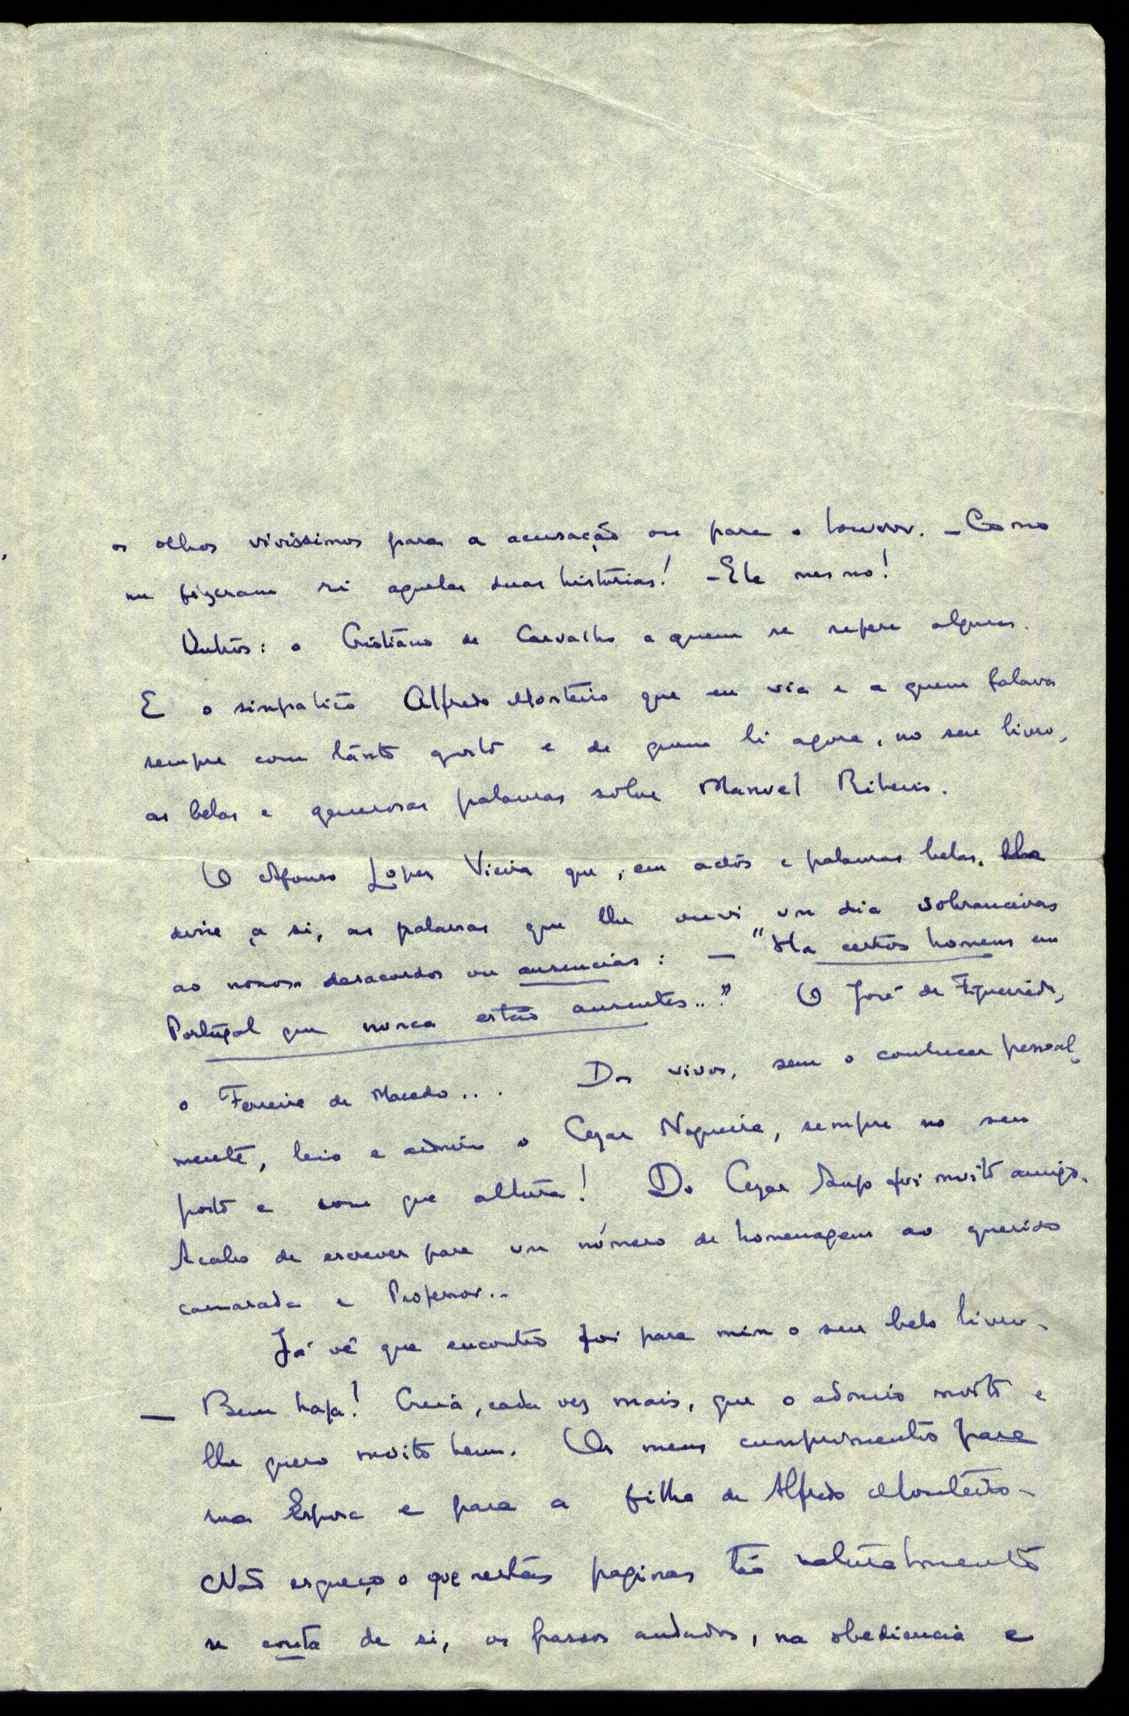 os olhos vivissimos para a acusação ou para o louvor. – Como
me fizeram rir aquelas suas histórias! – Ele mesmo!
Outros: o Cristiano de Carvalho a quem se refere algures.
E o simpatico Alfredo Monteiro que eu via e a quem falava
sempre com tanto gosto e de quem li agora, no seu livro,
as belas e generosas palavras sobre Manuel Ribeiro.
O Afonso Lopes Vieira que, em actos e palavras belas.
a si, as palavras que lhe ouvi um dia sobranceiras
ao nosso desacordos ou ausencias: – "Ha certos homens em
Portugal que nunca estão ausentes..." O José de Figueiredo,
o Ferreira de Macedo... Dos vivos, sem o conhecer pessoal-
mente, leio e admiro o Cezar Nogueira, sempre no seu
posto e com que altura! Do Cezar fui muito amigo.
Acabo de escrever para um número de homenagem ao querido
camarada e Professor...
Já vê que encontro foi para mim o seu belo livro.
– Bem haja! Creia, cada vez mais, que o admiro muito e
lhe quero muito bem. Os meus cumprimentos para
sua Esposa e para a filha de Alfredo Monteiro –
Não esqueço o que nestas paginas tão naturalmente
se conta de si, os passos andados, na obediencia e